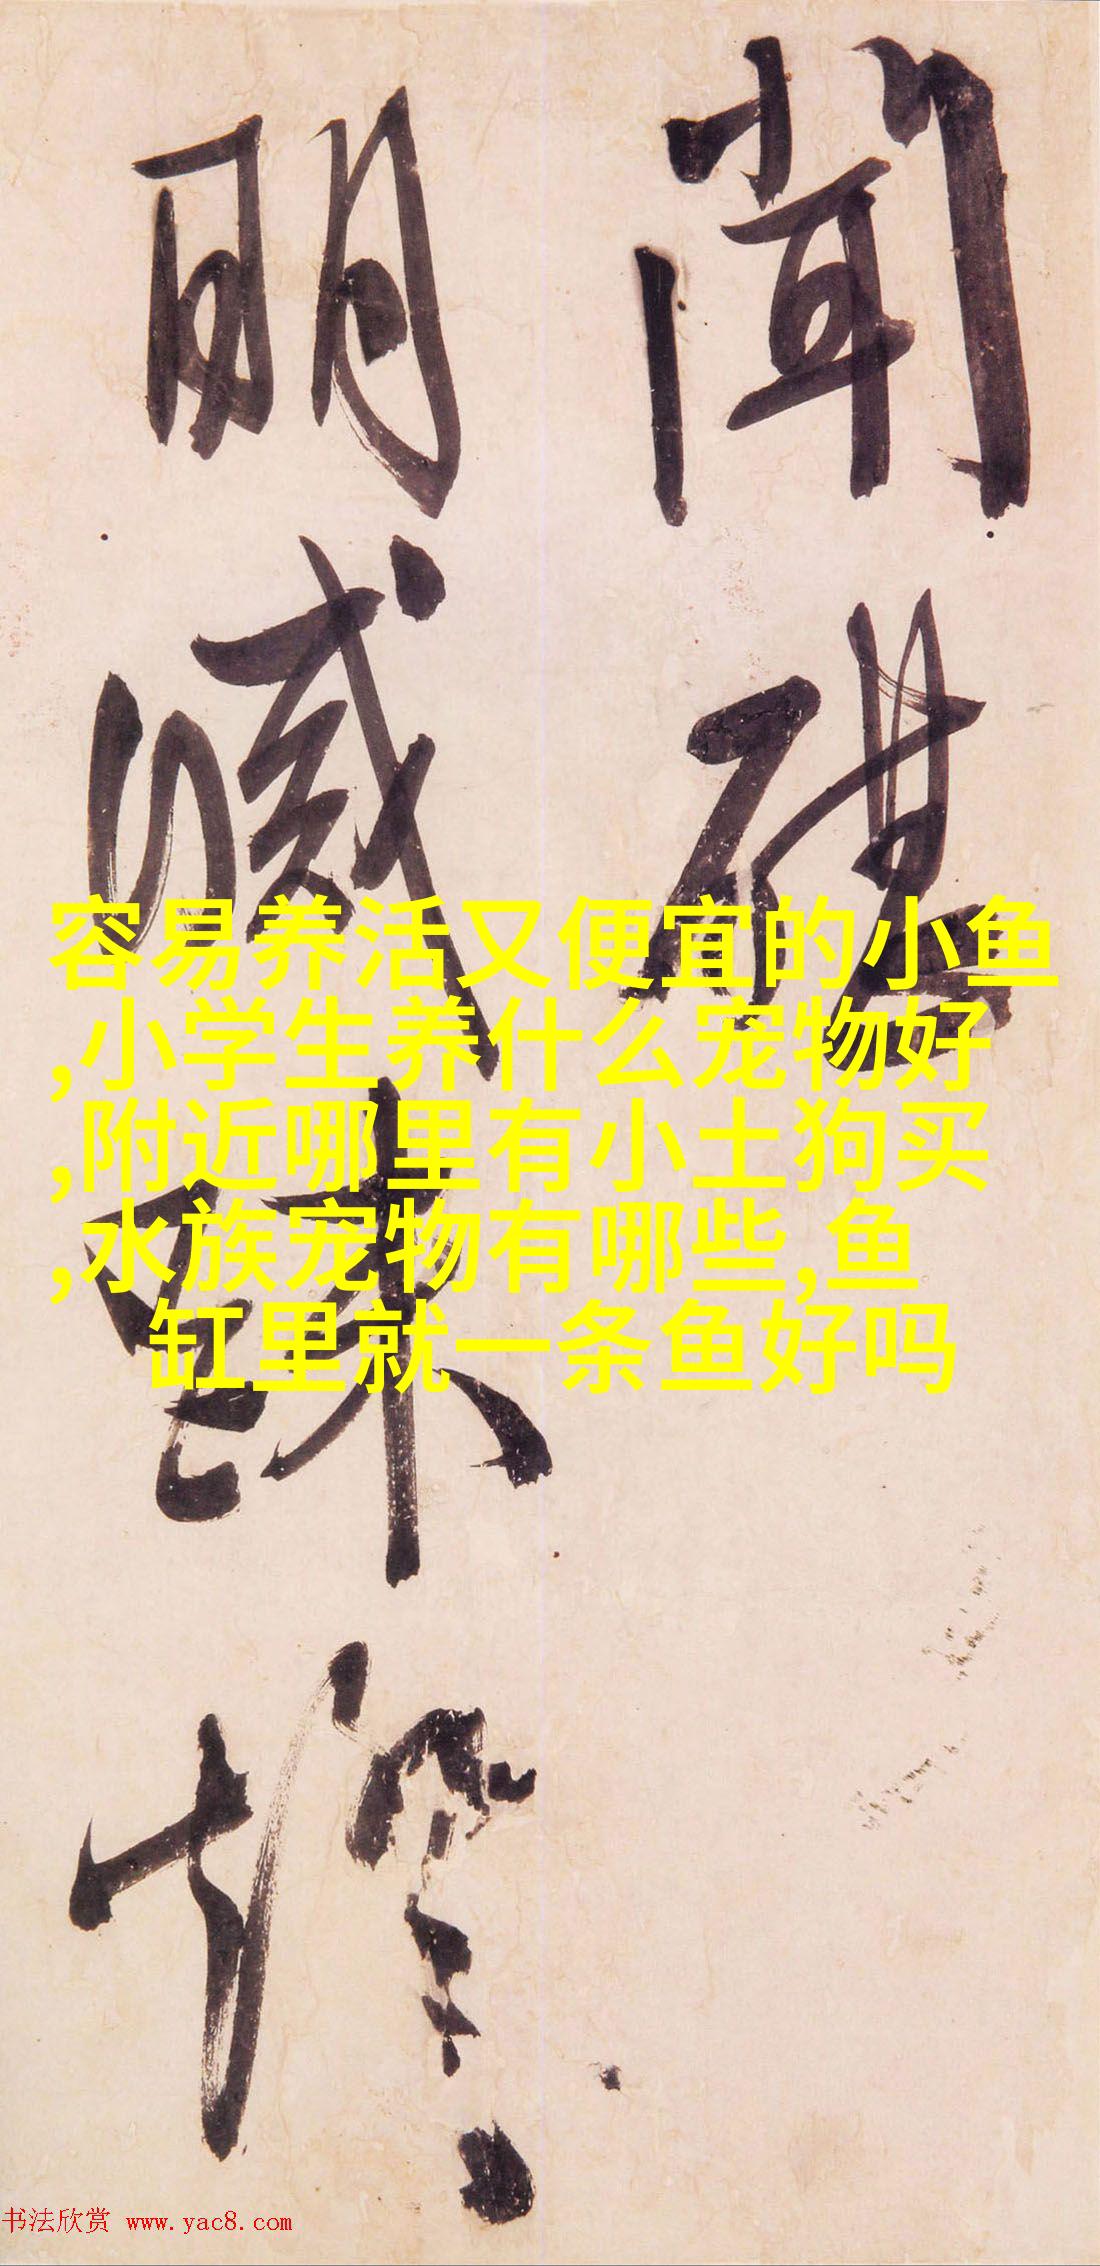 聞碪
明滅踈燈
容易养活又便宜的小鱼
,小学生养什么宠物好
,附近哪里有小土狗买
,水族宠物有哪些,鱼
缸里就一条鱼好吗
书法欣赏 www.yac8.com